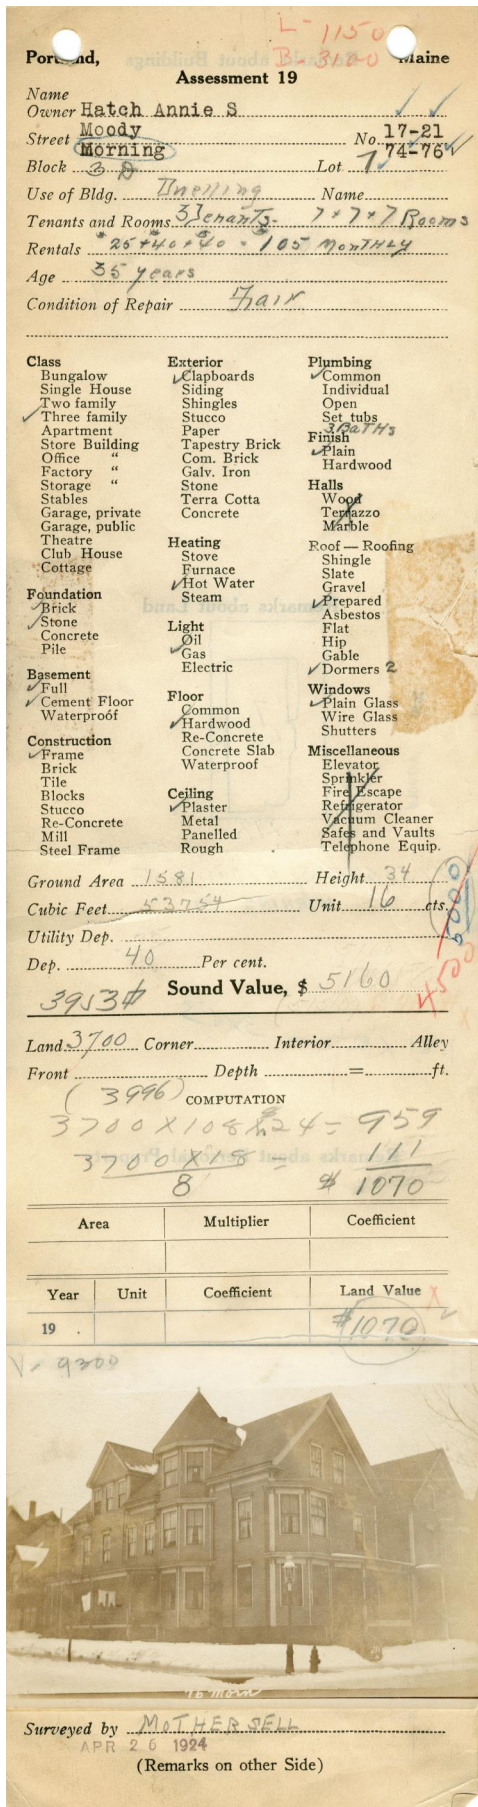 L- 1150
B- 3100
Portland, Maine
Assessment 19
Name
Owner Hatch Annie S
Moody 17-21
Street Morning No. 74-76
Block 3 D Lot 7
Use of Bldg. Dwelling Name
Tenants and Rooms 3 Tenants- 7+7+7 Rooms
Rentals $25+$40+$40 = 105 MONTHLY
Age 35 years
Condition of Repair Fair
Class
Bungalow
Single House
Two family
Three family
Apartment
Store Building
Office "
Factory "
Storage "
Stables
Garage, private
Garage, public
Theatre
Club House
Cottage
Foundation
Brick
Stone
Concrete
Pile
Basement
Full
Cement Floor
Waterproof
Construction
Frame
Brick
Tile
Blocks
Stucco
Re-Concrete
Mill
Steel Frame
Exterior
Clapboards
Siding
Shingles
Stucco
Paper
Tapestry Brick
Com. Brick
Galv. Iron
Stone
Terra Cotta
Concrete
Heating
Stove
Furnace
Hot Water
Steam
Light
Oil
Gas
Electric
Floor
Common
Hardwood
Re-Concrete
Concrete Slab
Waterproof
Ceiling
Plaster
Metal
Panelled
Rough
Plumbing
Common
Individual
Open
Set tubs
3 BATHS
Finish
Plain
Hardwood
Halls
Wood
Terrazzo
Marble
Roof — Roofing
Shingle
Slate
Gravel
Prepared
Asbestos
Flat
Hip
Gable
Dormers 2
Windows
Plain Glass
Wire Glass
Shutters
Miscellaneous
Elevator
Sprinkler
Fire Escape
Refrigerator
Vacuum Cleaner
Safes and Vaults
Telephone Equip.
Ground Area 1581 Height 34
Cubic Feet 53754 Unit 16 cts.
5000
Utility Dep.
Dep. 40 Per cent.
4500
Sound Value, $ 5160
3953
Land 3700 Corner Interior Alley
Front Depth = ft.
(3996) COMPUTATION
3700 X 108 X 24 = 959
3700 X 18 = 111
8 $ 1070
Area Multiplier Coefficient
Year Unit Coefficient Land Value
19 $1070
9300
76 Morn
Surveyed by MOTHERSELL
APR 26 1924
(Remarks on other Side)